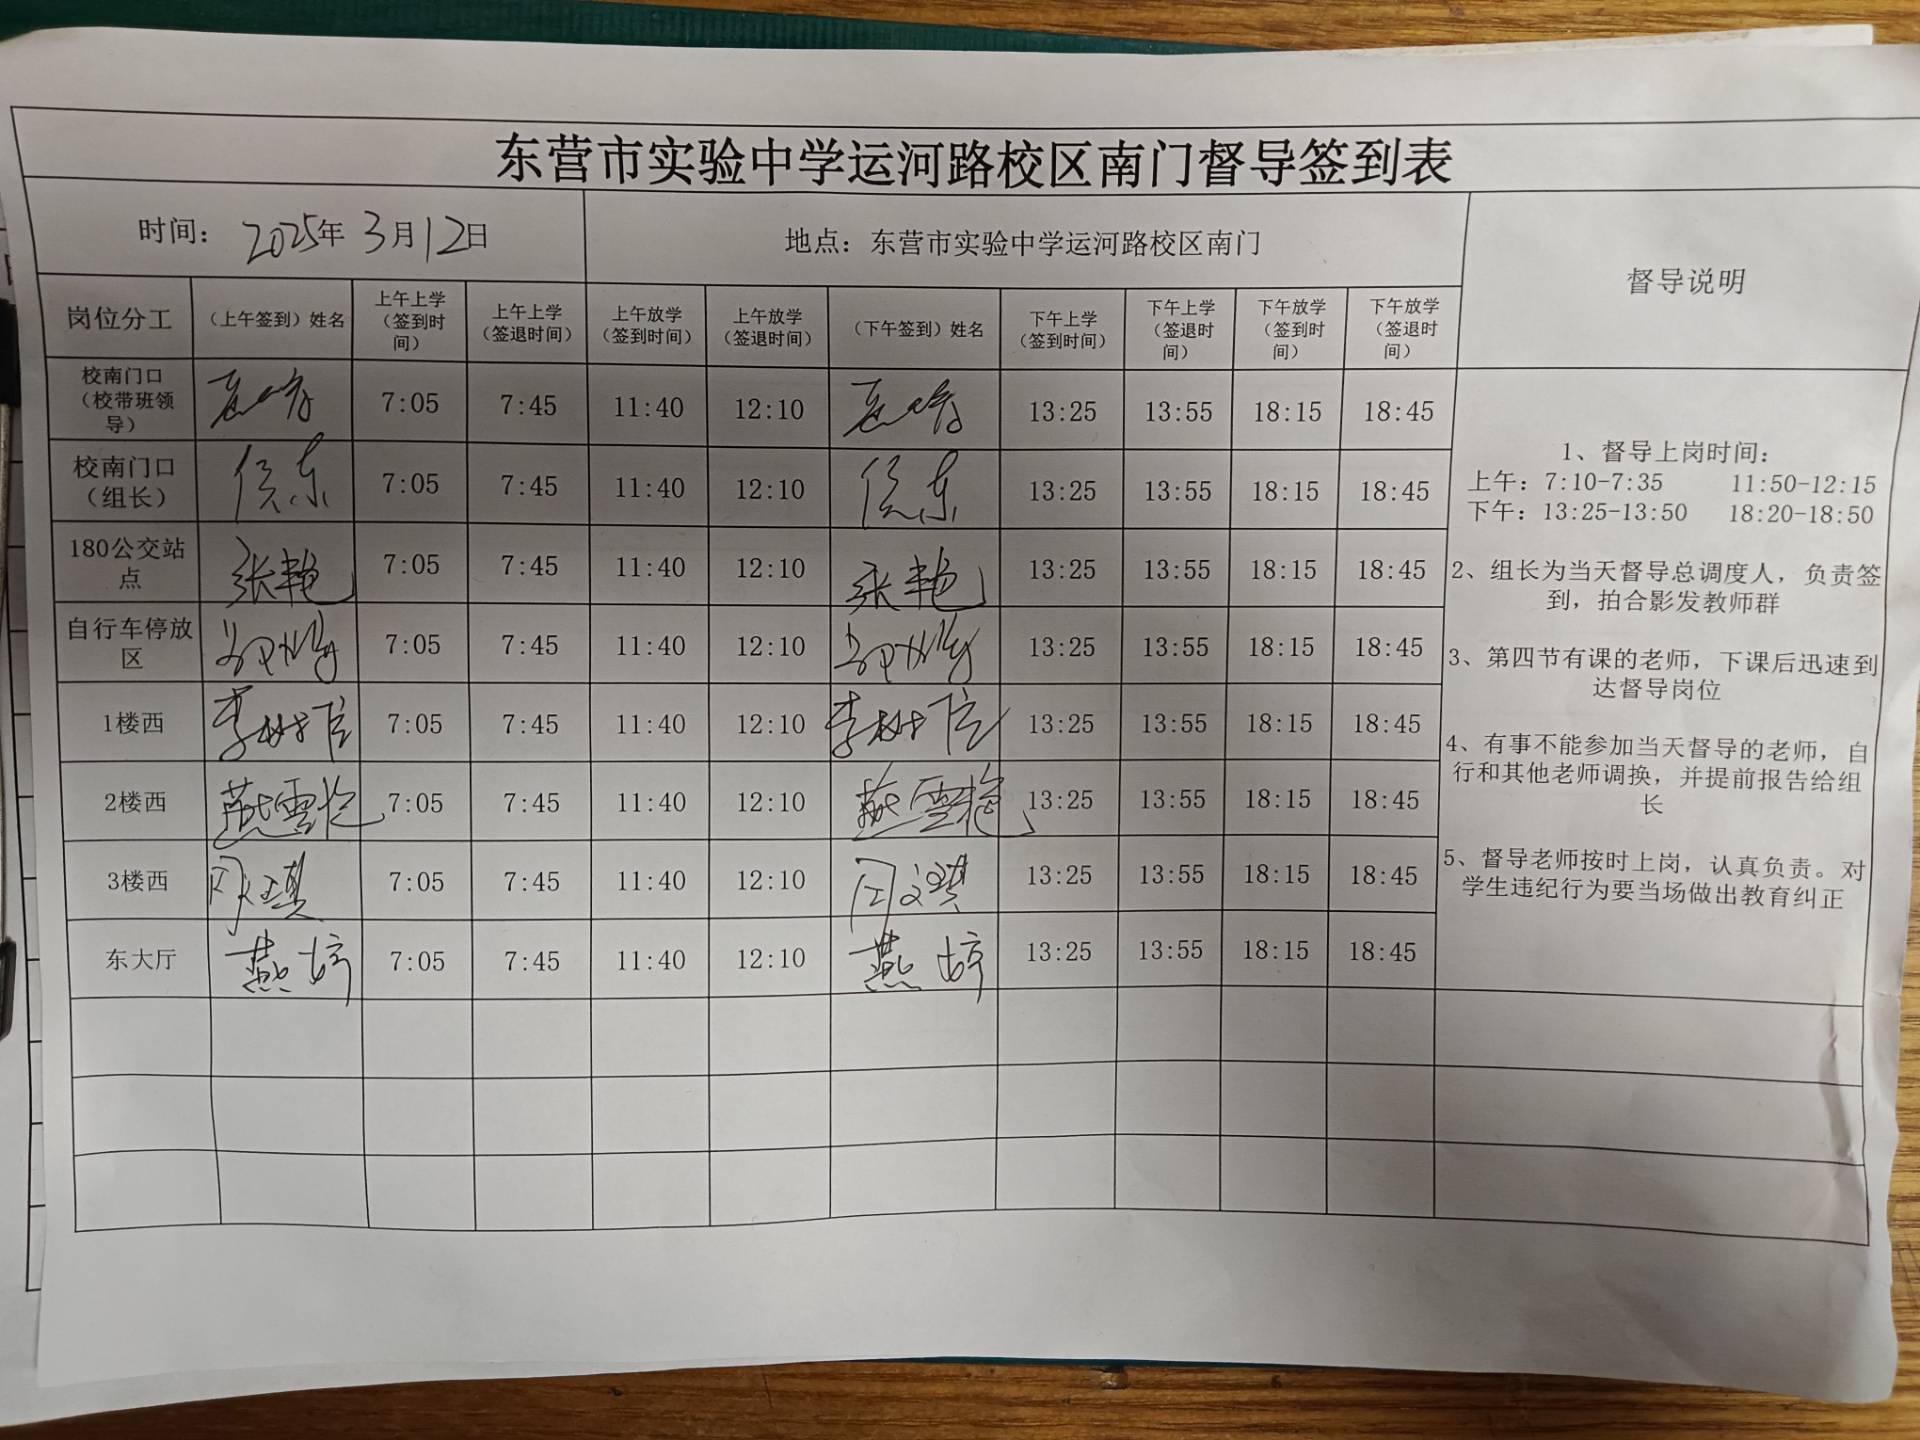 东营市实验中学运河路校区南门督导签到表
时间： 2025年 3月12日
地点：东营市实验中学运河路校区南门
督导说明
岗位分工
（上午签到）姓名
上午上学
（签到时
间）
上午上学
（签退时间）
上午放学
（签到时间）
上午放学
（签退时间）
（下午签到）姓名
下午上学
（签到时间）
下午上学
（签退时
间）
下午放学
（签到时
间）
下午放学
（签退时
间）
校南门口
（校带班领
导）
7:05 7:45 11:40 12:10 13:25 13:55 18:15 18:45
校南门口
（组长）
侯东 7:05 7:45 11:40 12:10 侯东 13:25 13:55 18:15 18:45
180公交站
点
张艳 7:05 7:45 11:40 12:10 张艳 13:25 13:55 18:15 18:45
自行车停放
区
7:05 7:45 11:40 12:10 13:25 13:55 18:15 18:45
1楼西 李树 7:05 7:45 11:40 12:10 李树 13:25 13:55 18:15 18:45
2楼西 燕雪艳 7:05 7:45 11:40 12:10 燕雪艳 13:25 13:55 18:15 18:45
3楼西 7:05 7:45 11:40 12:10 13:25 13:55 18:15 18:45
东大厅 燕婷 7:05 7:45 11:40 12:10 燕婷 13:25 13:55 18:15 18:45
1、督导上岗时间：
上午：7:10-7:35 11:50-12:15
下午：13:25-13:50 18:20-18:50
2、组长为当天督导总调度人，负责签
到，拍合影发教师群
3、第四节有课的老师，下课后迅速到
达督导岗位
4、有事不能参加当天督导的老师，自
行和其他老师调换，并提前报告给组
长
5、督导老师按时上岗，认真负责。对
学生违纪行为要当场做出教育纠正